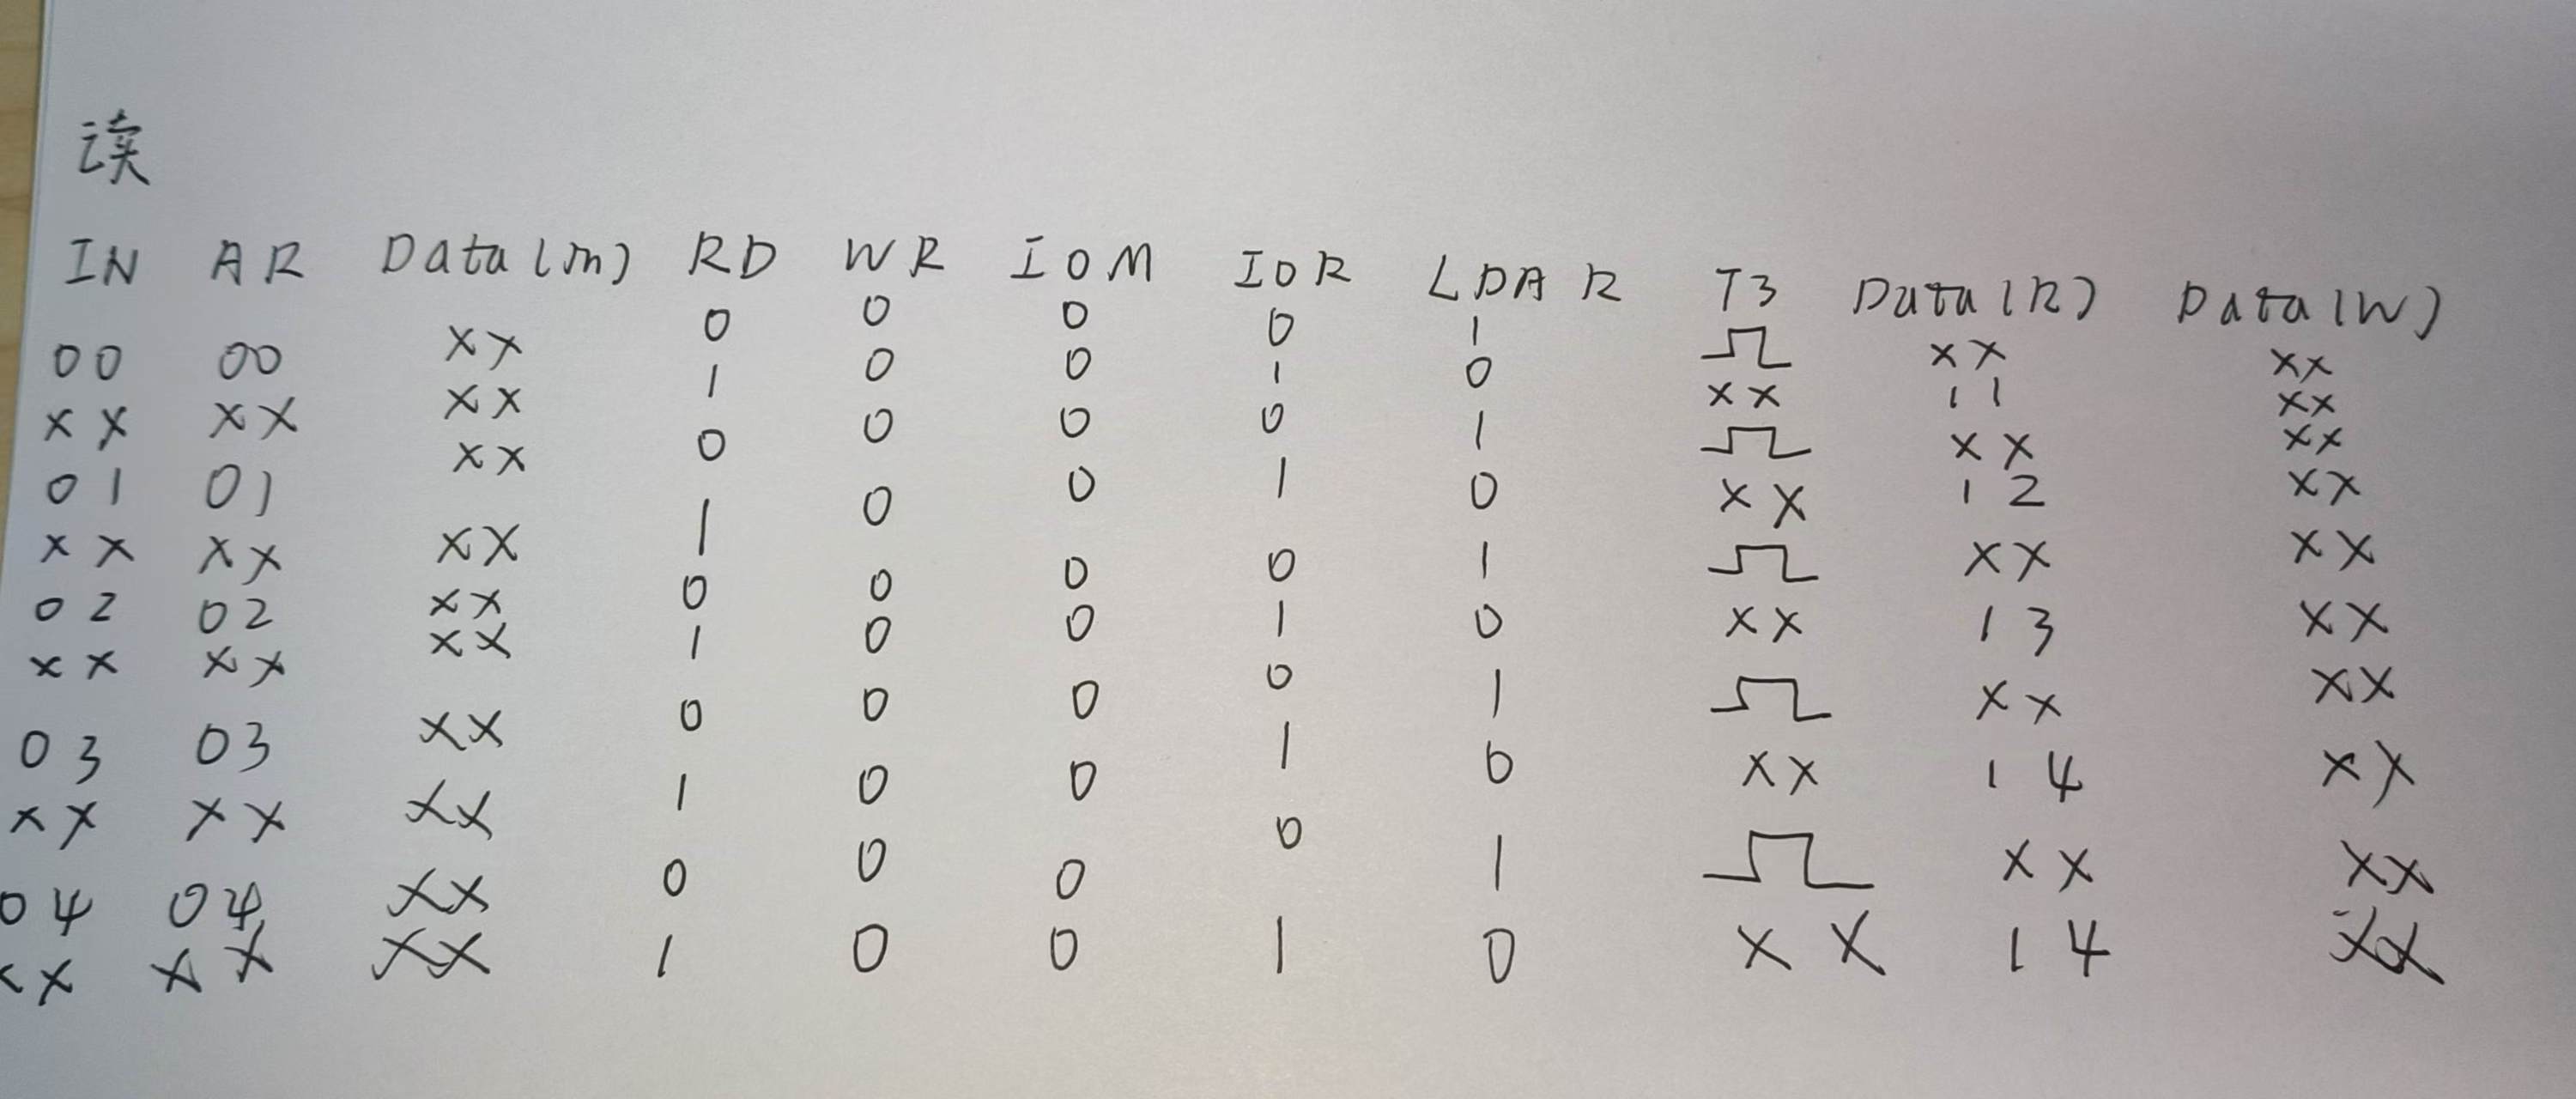 读
IN AR Data(m) RD WR IOM IOR LDAR T3 Data(R) Data(W)
00 00 XX 0 0 0 0 1 XX XX
XX XX XX 1 0 0 1 0 XX 11 XX
01 01 XX 0 0 0 0 1 XX XX
XX XX XX 1 0 0 1 0 XX 12 XX
02 02 XX 0 0 0 0 1 XX XX
XX XX XX 1 0 0 1 0 XX 13 XX
03 03 XX 0 0 0 0 1 XX XX
XX XX XX 1 0 0 1 0 XX 14 XX
04 04 XX 0 0 0 0 1 XX XX
XX XX XX 1 0 0 1 0 XX 14 XX